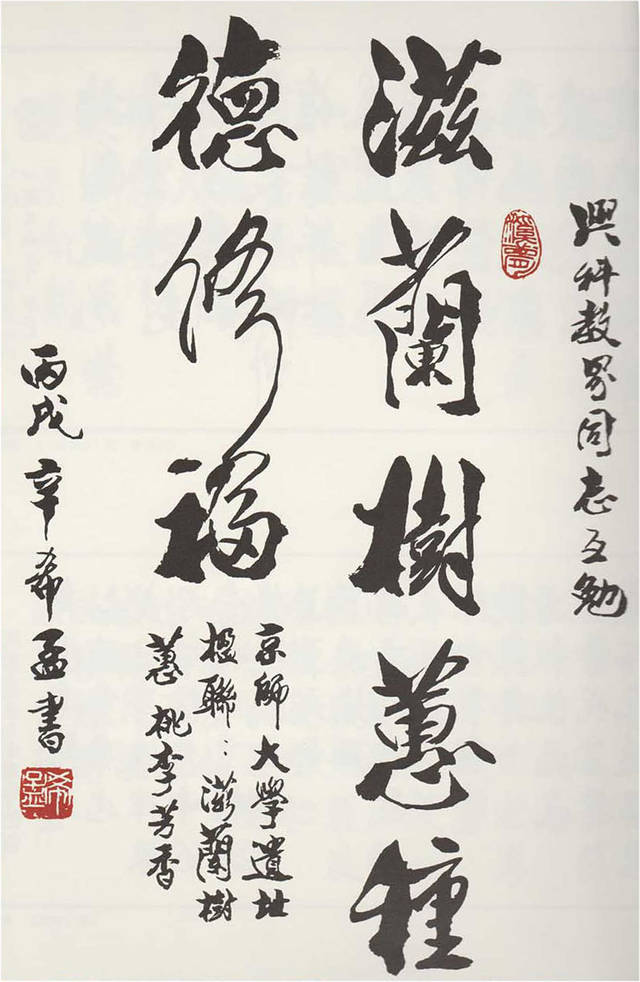 與科教界同志互勉
滋蘭樹蕙種
德修福
京師大學遺址
楹聯：滋蘭樹
蕙桃李芳香
丙戌辛希孟書
希孟